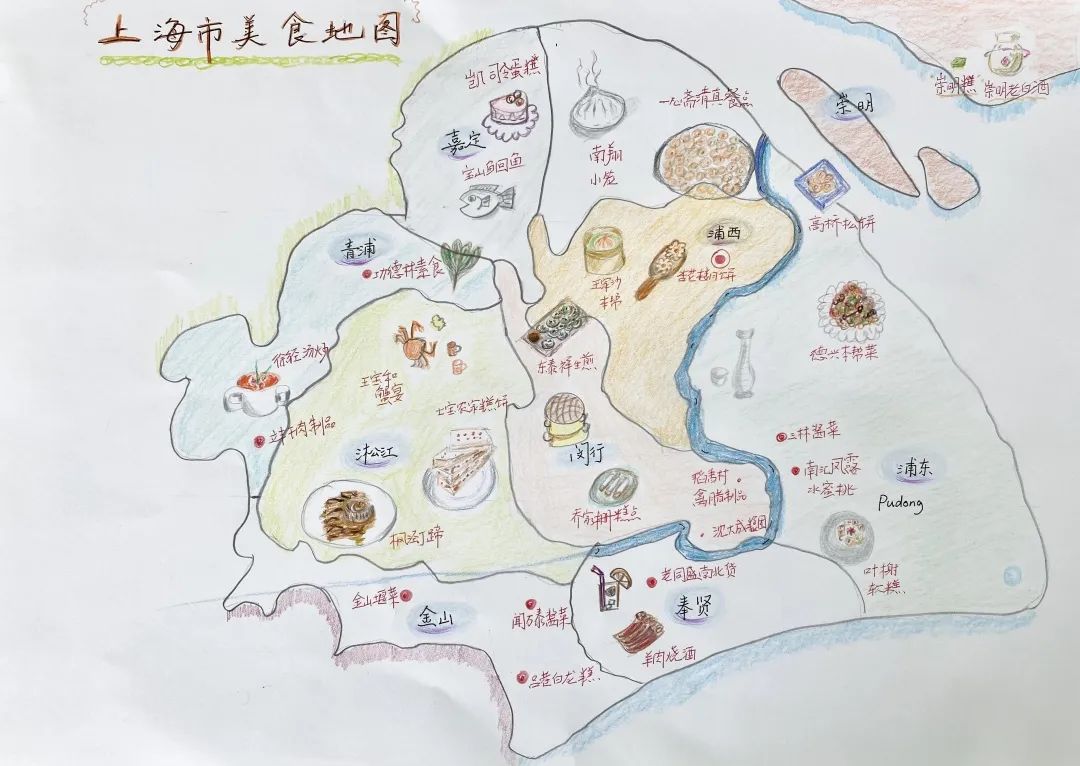 上海市美食地图
凯司令蛋糕
嘉定
宝山鮰鱼
南翔
小笼
一心斋清真餐点
崇明
崇明糕
崇明老白酒
高桥松饼
青浦
功德林素食
浦西
王家沙
杏花楼月饼
东泰祥生煎
德兴本帮菜
徐泾汤炒
王宝和
蟹宴
七宝农家糕饼
立丰肉制品
松江
枫泾丁蹄
闵行
乔家栅糕点
稻香村
禽腊制品
沈大成糕团
三林酱菜
南汇凤露
水蜜桃
浦东
Pudong
叶榭
软糕
金山
奉贤
老同盛南北货
羊肉烧酒
吕巷白龙糕